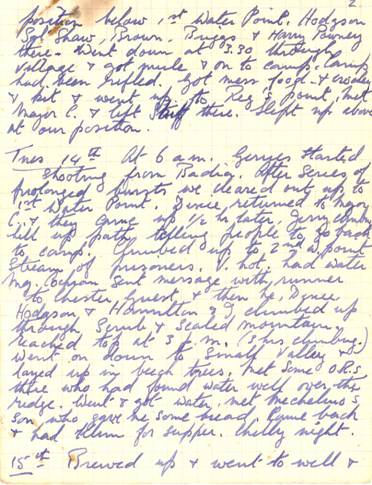 2
position below 1st Water Point. Hodgson
Sgt Shaw, Brown, Briggs & Harry
there. Went down at 3.30 through
village & got mule & on to camp. Camp
had been rifled. Got mess food &
& kit & went up to Reg's Point. Met
Major C. & left Stuff there. Slept up above
at our position.
Tues 14th At 6 a.m. Gerrys Started
shooting from Badia. After Series of
prolonged bursts we cleared out up to
1st Water Point. returned to Major
C. & they came up 1/2 hr later. Jerry climbing
hill up path telling people to go back
to camp. Climbed up to 2nd W point
Stream of prisoners. V. hot, had water
Maj. Sent message with runner
to Chester Guest, & then he,
Hodgson & Hamilton & I climbed up
through Scrub & Scaled mountain.
reached top at 3 p.m. (3 hrs climbing.)
Went on down to Small Valley &
layed up in beech trees. Met Some O.R.s
there who had found water well over the
ridge. Went & got water. Met
son who gave me some bread. Came back
& had for supper. Chilly night.
15th Brewed up & went to well &